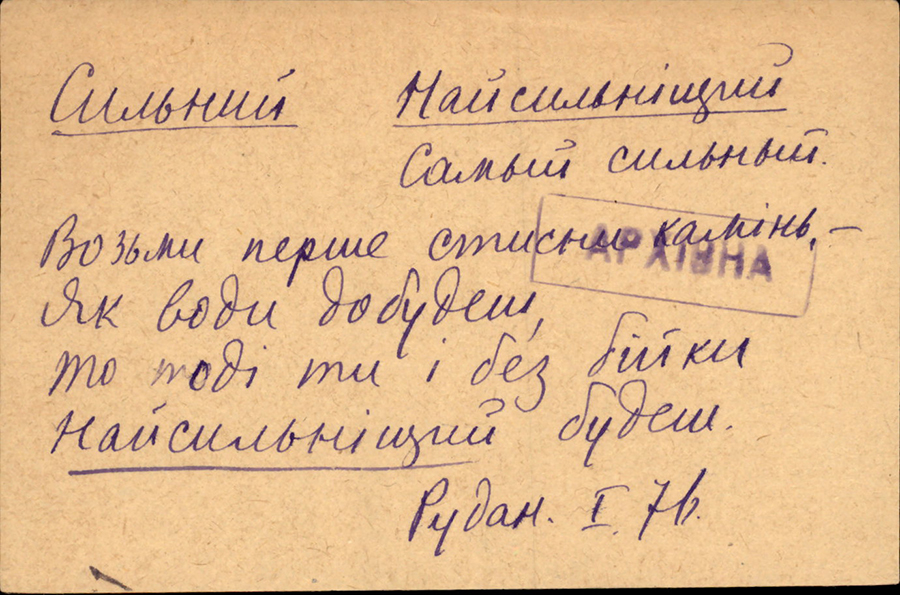 Сильний Найсильніщий
Самый сильный.
Возьми перше стисни камінь, –
АРХІВНА
Як води добудеш,
то тоді ти і без бійки
Найсильніщий будеш.
Рудан. I. 7